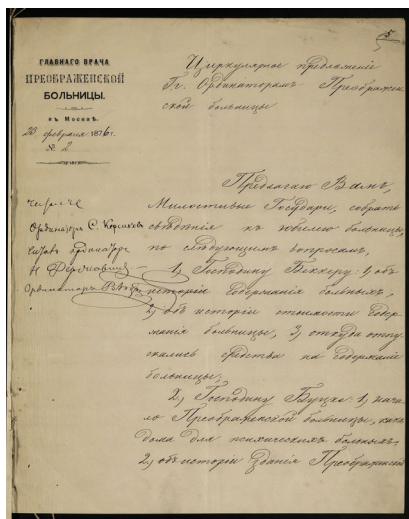 5
ГЛАВНАГО ВРАЧА
ПРЕОБРАЖЕНСКОЙ
БОЛЬНИЦЫ.
въ Москвѣ.
23 февраля 1876 г.
№ 2
Циркулярное предложеніе
Гг. Ординаторамъ Преображен-
ской больницы
Предлагаю Вамъ,
Милостивые Государи, собрать
свѣдѣнія къ юбилею больницы,
по слѣдующимъ вопросамъ,
1) Господину Беккеру: 1) объ
исторіи содержанія больныхъ,
2) объ исторіи стоимости содер-
жанія больницы, 3) откуда отпу-
скались средства на содержаніе
больницы;
2) Господину Буцке 1) нача-
ло Преображенской больницы, какъ
дома для психическихъ больныхъ,
2) объ исторіи зданія Преображенской
Ординаторъ С. Корсаковъ
ординаторъ
Ординаторъ